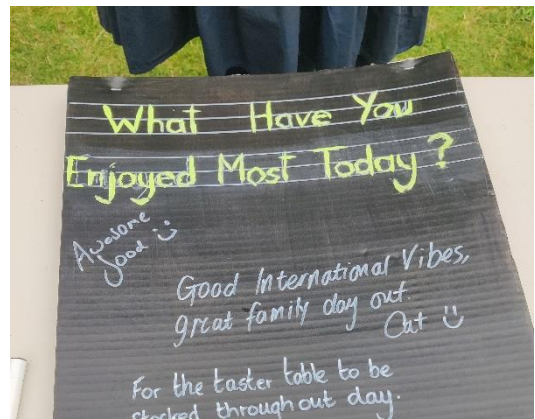 What Have You
Enjoyed Most Today?
Awesome
food :)
Good International Vibes,
great family day out.
Cat :)
For the taster table to be
stocked throughout day.